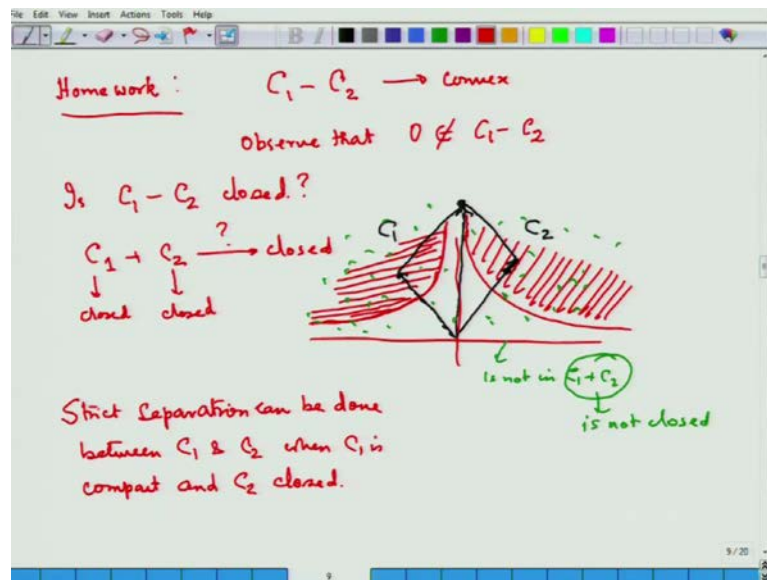 File Edit View Insert Actions Tools Help
Homework : C₁ - C₂ → convex
Observe that 0 ∉ C₁ - C₂
Is C₁ - C₂ closed?
C₁ + C₂ →? closed
↓ ↓
closed closed
C₁ C₂
is not in C₁+C₂
↓
is not closed
Strict Separation can be done
between C₁ & C₂ when C₁ is
compact and C₂ closed.
9/20
9